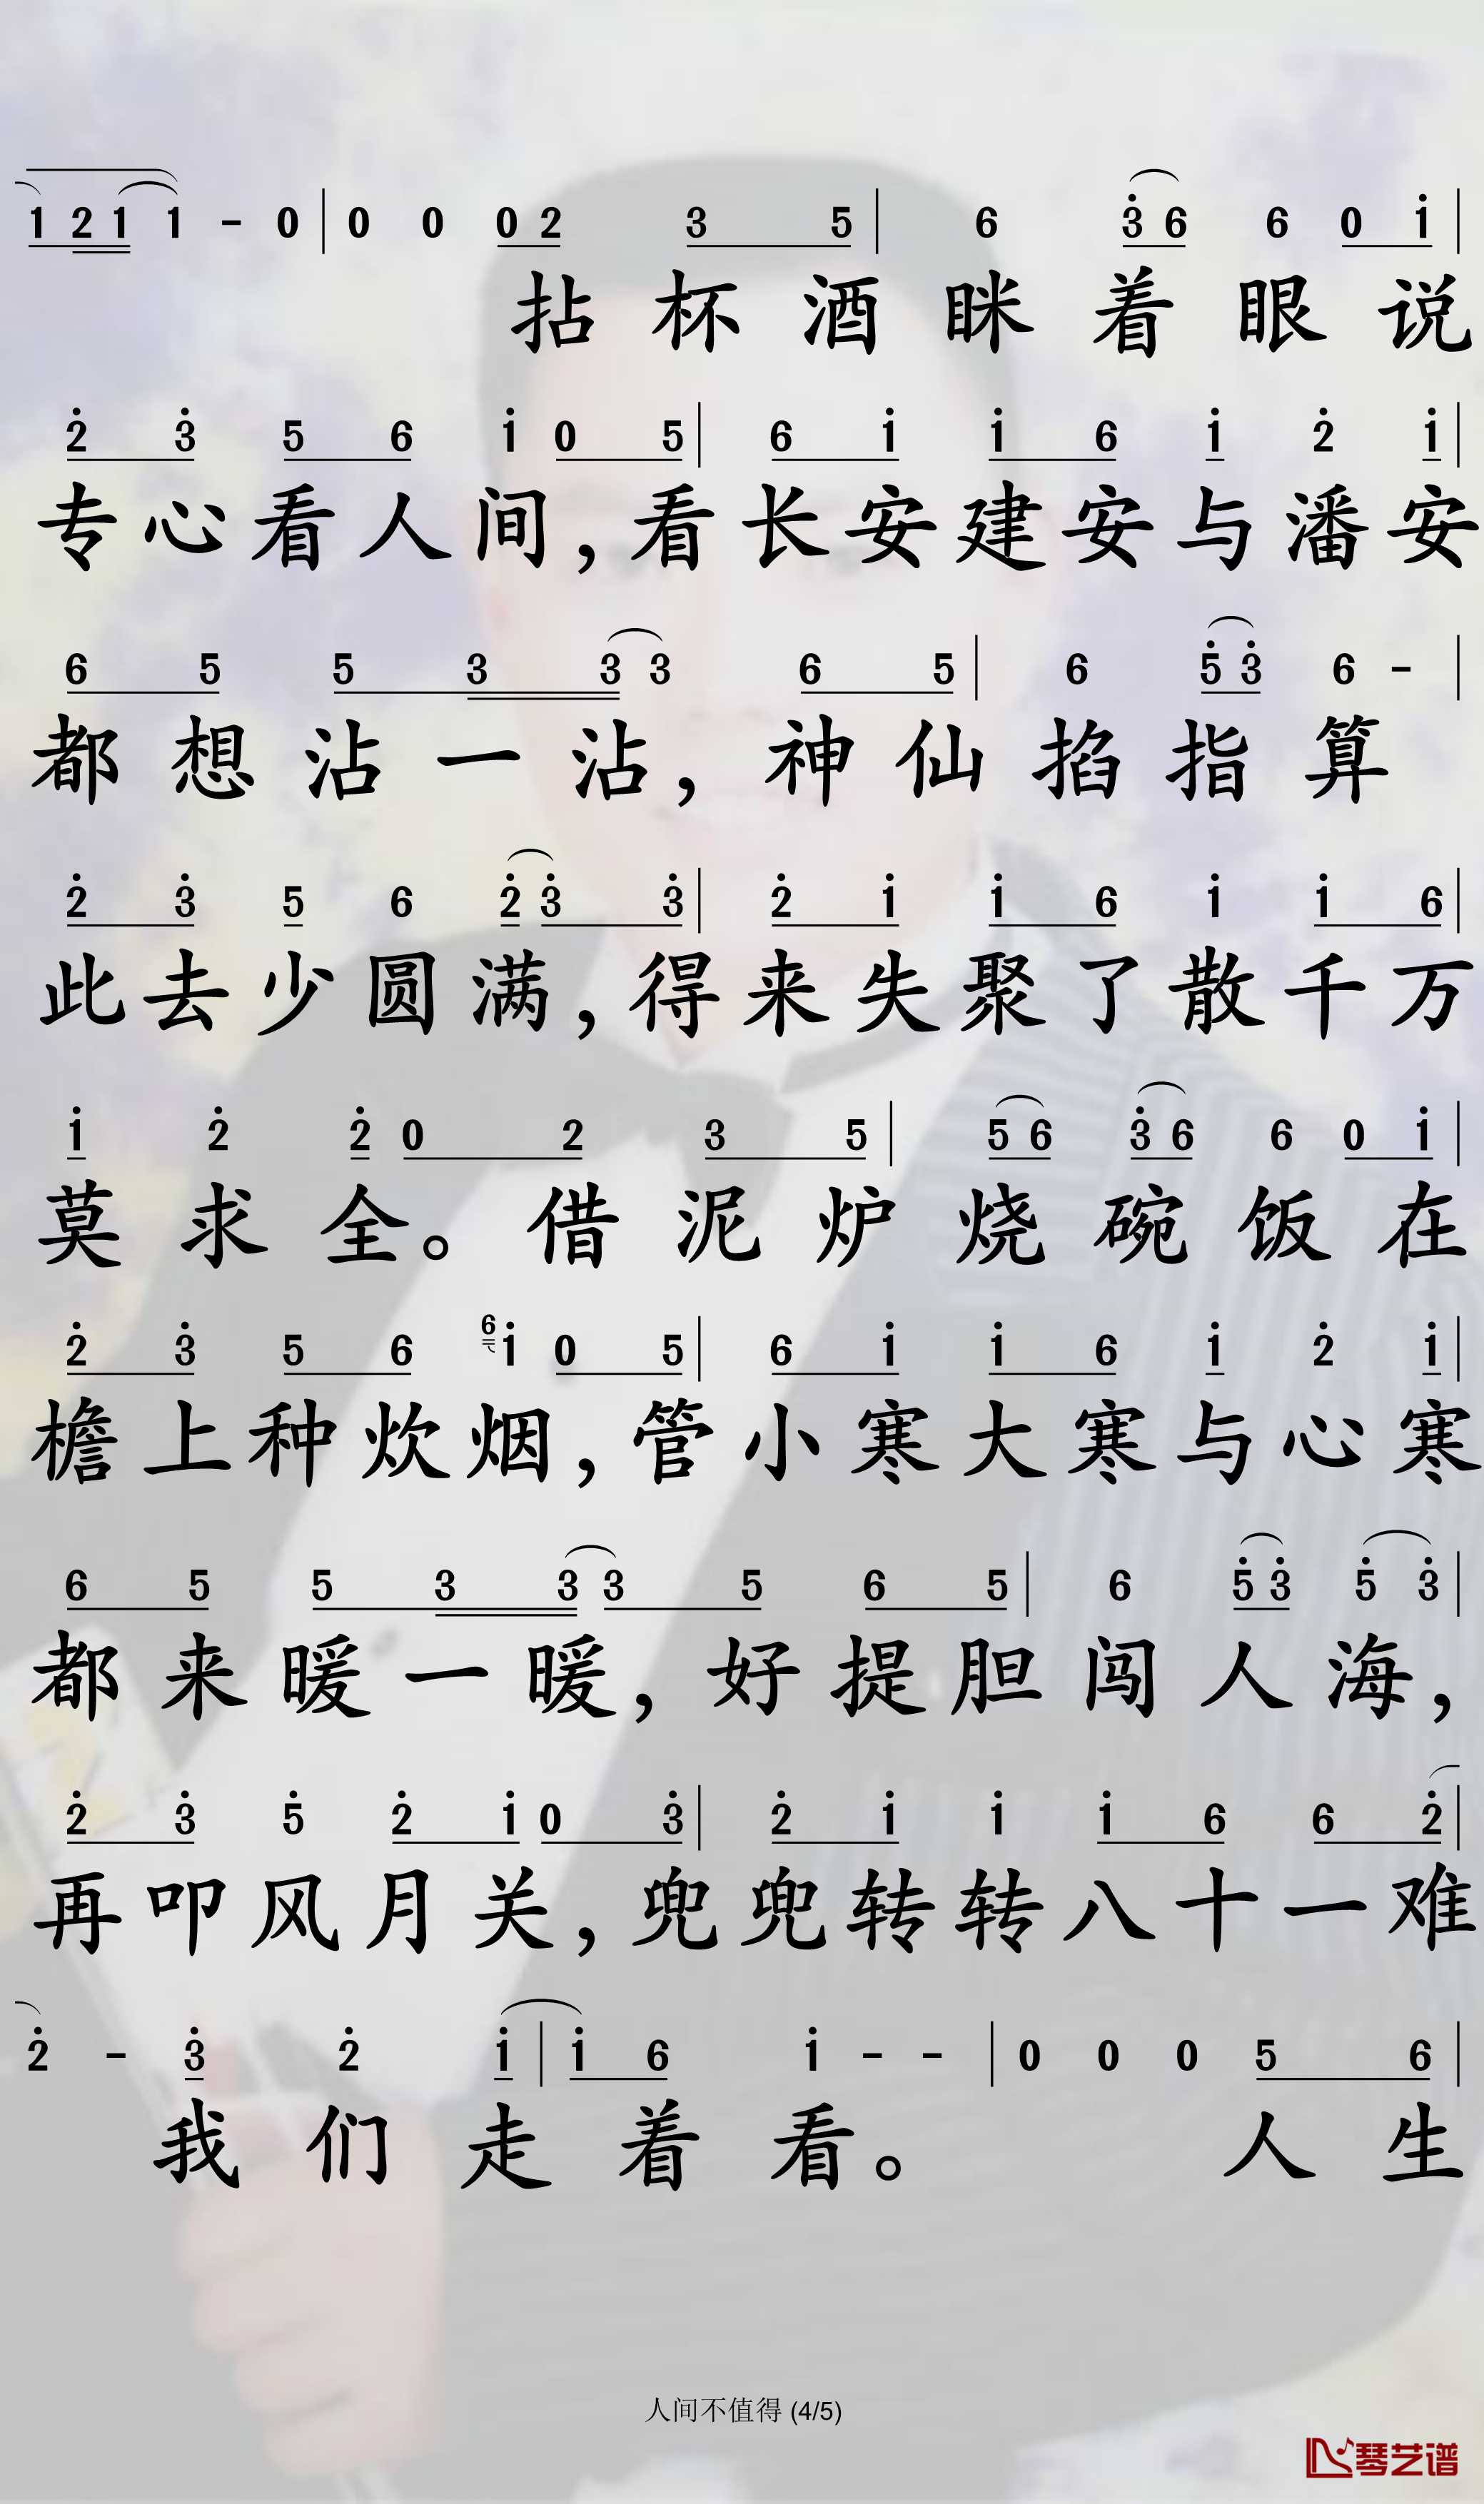 1 2 1 1 - 0 | 0 0 0 2 3 5 | 6 3 6 6 0 1 |
拈杯酒眯着眼说
2 3 5 6 1 0 5 | 6 1 1 6 1 2 1 |
专心看人间,看长安建安与潘安
6 5 5 3 3 3 6 5 | 6 5 3 6 - |
都想沾一沾,神仙掐指算
2 3 5 6 2 3 3 | 2 1 1 6 1 1 6 |
此去少圆满,得来失聚了散千万
1 2 2 0 2 3 5 | 5 6 3 6 6 0 1 |
莫求全。借泥炉烧碗饭在
2 3 5 6 6 1 0 5 | 6 1 1 6 1 2 1 |
檐上种炊烟,管小寒大寒与心寒
6 5 5 3 3 3 5 6 5 | 6 5 3 5 3 |
都来暖一暖,好提胆闯人海,
2 3 5 2 1 0 3 | 2 1 1 1 6 6 2 |
再叩风月关,兜兜转转八十一难
2 - 3 2 1 | 1 6 1 - - | 0 0 0 5 6 |
我们走着看。人生
人间不值得 (4/5)
琴艺谱